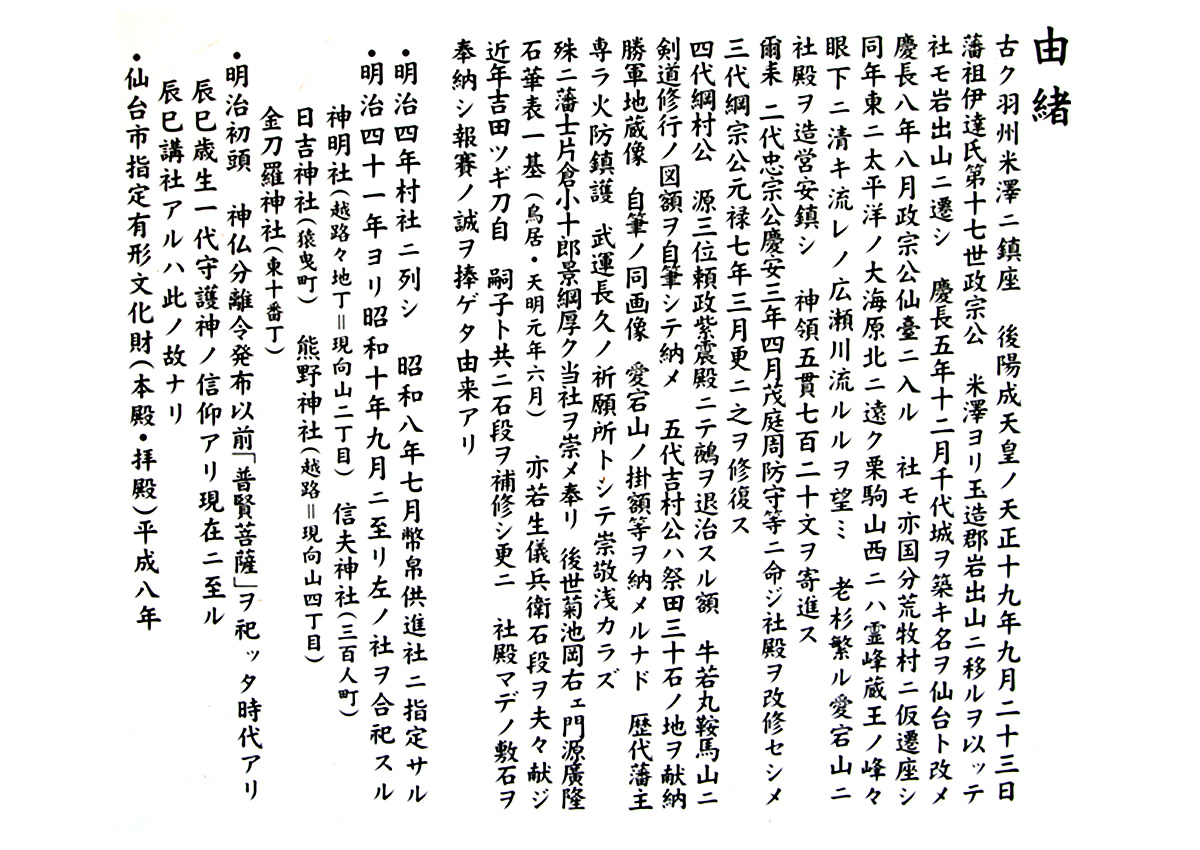 由緒
古ク羽州米澤ニ鎮座　後陽成天皇ノ天正十九年九月二十三日
藩祖伊達氏第十七世政宗公　米澤ヨリ玉造郡岩出山ニ移ルヲ以ッテ
社モ岩出山ニ遷シ　慶長五年十二月千代城ヲ築キ名ヲ仙台ト改メ
慶長八年八月政宗公仙臺ニ入ル　社モ亦国分荒牧村ニ仮遷座シ
同年東ニ太平洋ノ大海原北ニ遠ク栗駒山西ニハ霊峰蔵王ノ峰々
眼下ニ清キ流レノ広瀬川流ルルヲ望ミ　老杉繁ル愛宕山ニ
社殿ヲ造営安鎮シ　神領五貫七百二十文ヲ寄進ス
爾来 二代忠宗公慶安三年四月茂庭周防守等ニ命ジ社殿ヲ改修セシメ
三代綱宗公元禄七年三月更ニ之ヲ修復ス
四代綱村公　源三位頼政紫震殿ニテ鵺ヲ退治スル額　牛若丸鞍馬山ニ
剣道修行ノ図額ヲ自筆シテ納メ　五代吉村公ハ祭田三十石ノ地ヲ献納
勝軍地蔵像　自筆ノ同画像　愛宕山ノ掛額等ヲ納メルナド　歴代藩主
専ラ火防鎮護　武運長久ノ祈願所トシテ崇敬浅カラズ
殊ニ藩士片倉小十郎景綱厚ク当社ヲ崇メ奉リ　後世菊池岡右ェ門源廣隆
石華表一基（鳥居・天明元年六月）　亦若生儀兵衛石段ヲ夫々献ジ
近年吉田ツギ刀自　嗣子ト共ニ石段ヲ補修シ更ニ　社殿マデノ敷石ヲ
奉納シ報賽ノ誠ヲ捧ゲタ由来アリ
・明治四年村社ニ列シ　昭和八年七月幣帛供進社ニ指定サル
・明治四十一年ヨリ昭和十年九月ニ至リ左ノ社ヲ合祀スル
神明社（越路々地丁＝現向山二丁目）　信夫神社（三百人町）
日吉神社（猿曳町）　熊野神社（越路＝現向山四丁目）
金刀羅神社（東十番丁）
・明治初頭　神仏分離令発布以前「普賢菩薩」ヲ祀ッタ時代アリ
辰巳歳生一代守護神ノ信仰アリ現在ニ至ル
辰巳講社アルハ此ノ故ナリ
・仙台市指定有形文化財（本殿・拝殿）平成八年